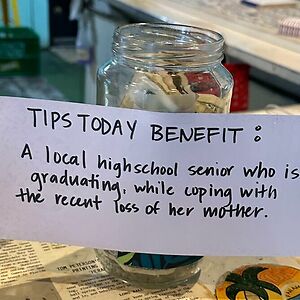 TIPS TODAY BENEFIT :
A local highschool senior who is
graduating, while coping with
the recent loss of her mother.
TOM PETERSON